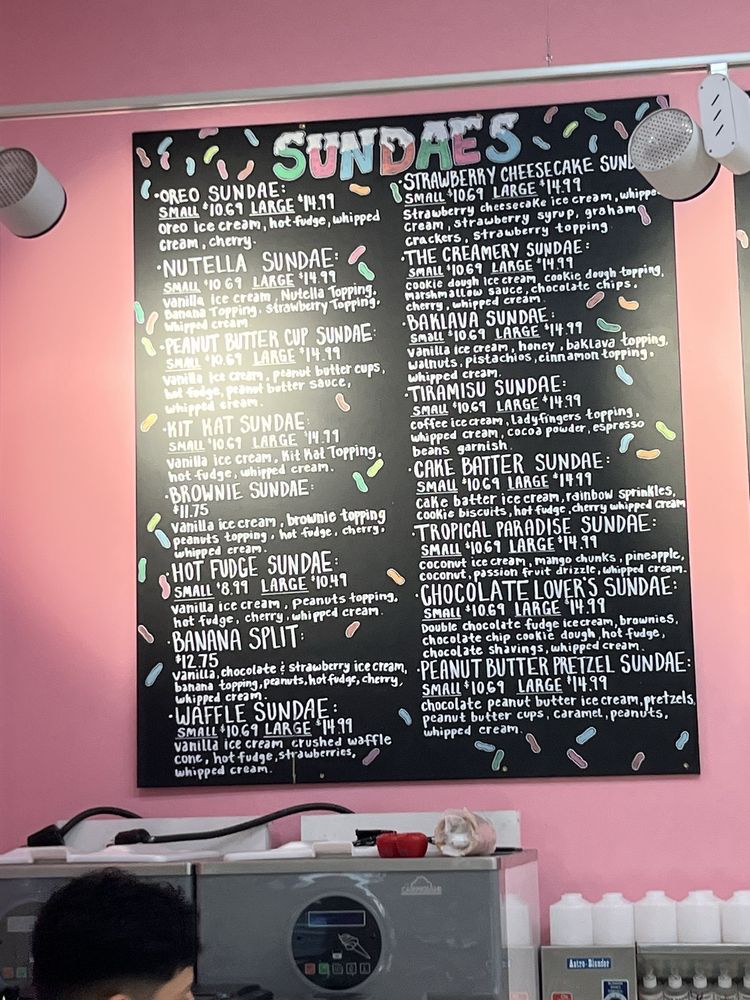 SUNDAES
·OREO SUNDAE:
SMALL $10.69 LARGE $14.99
Oreo ice cream, hot fudge, whipped
cream, cherry.
·NUTELLA SUNDAE:
SMALL $10.69 LARGE $14.99
vanilla ice cream, Nutella Topping,
Banana Topping, Strawberry Topping,
Whipped cream
·PEANUT BUTTER CUP SUNDAE:
SMALL $10.69 LARGE $14.99
vanilla ice cream, peanut butter cups,
hot fudge, peanut butter sauce,
whipped cream.
·KIT KAT SUNDAE:
SMALL $10.69 LARGE $14.99
vanilla ice cream, Kit Kat Topping,
hot fudge, whipped cream.
·BROWNIE SUNDAE:
$11.75
vanilla ice cream, brownie topping
peanuts topping, hot fudge, cherry,
whipped cream.
·HOT FUDGE SUNDAE:
SMALL $8.99 LARGE $10.49
vanilla ice cream, peanuts topping,
hot fudge, cherry, whipped cream.
·BANANA SPLIT:
$12.75
vanilla, chocolate & strawberry ice cream,
banana topping, peanuts, hot fudge, cherry,
whipped cream.
·WAFFLE SUNDAE:
SMALL $10.69 LARGE $14.99
vanilla ice cream crushed waffle
cone, hot fudge, strawberries,
whipped cream.
·STRAWBERRY CHEESECAKE SUND
SMALL $10.69 LARGE $14.99
Strawberry cheesecake ice cream, whippe
cream, strawberry syrup, graham
crackers, strawberry topping.
·THE CREAMERY SUNDAE:
SMALL $10.69 LARGE $14.99
cookie dough ice cream, cookie dough topping,
marshmallow sauce, chocolate chips,
cherry, whipped cream.
·BAKLAVA SUNDAE:
SMALL $10.69 LARGE $14.99
vanilla ice cream, honey, baklava topping,
walnuts, pistachios, cinnamon topping,
whipped cream.
·TIRAMISU SUNDAE:
SMALL $10.69 LARGE $14.99
coffee ice cream, ladyfingers topping,
whipped cream, cocoa powder, espresso
beans garnish.
·CAKE BATTER SUNDAE:
SMALL $10.69 LARGE $14.99
cake batter ice cream, rainbow sprinkles,
cookie biscuits, hot fudge, cherry whipped cream
·TROPICAL PARADISE SUNDAE:
SMALL $10.69 LARGE $14.99
coconut ice cream, mango chunks, pineapple,
coconut, passion fruit drizzle, whipped cream.
·CHOCOLATE LOVER'S SUNDAE:
SMALL $10.69 LARGE $14.99
Double chocolate fudge ice cream, brownies,
chocolate chip cookie dough, hot fudge,
chocolate shavings, whipped cream.
·PEANUT BUTTER PRETZEL SUNDAE:
SMALL $10.69 LARGE $14.99
chocolate peanut butter ice cream, pretzels,
peanut butter cups, caramel, peanuts,
whipped cream.
CARPIGIANI
Astro-Blender